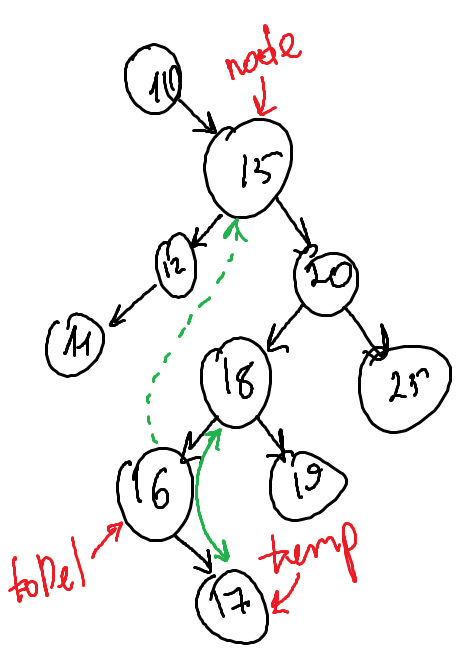 10
node
15
12
20
11
18
25
16
19
toDel
temp
17